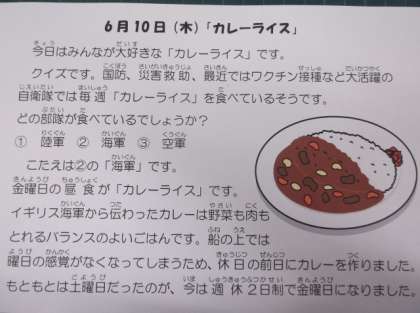 6月10日(木)「カレーライス」
今日はみんなが大好きな「カレーライス」です。
クイズです。国防、災害救助、最近ではワクチン接種など大活躍の
自衛隊では毎週「カレーライス」を食べているそうです。
どの部隊が食べているでしょうか?
① 陸軍 ② 海軍 ③ 空軍
こたえは②の「海軍」です。
金曜日の昼食が「カレーライス」です。
イギリス海軍から伝わったカレーは野菜も肉も
とれるバランスのよいごはんです。船の上では
曜日の感覚がなくなってしまうため、休日の前日にカレーを作りました。
もともとは土曜日だったのが、今は週休2日制で金曜日になりました。